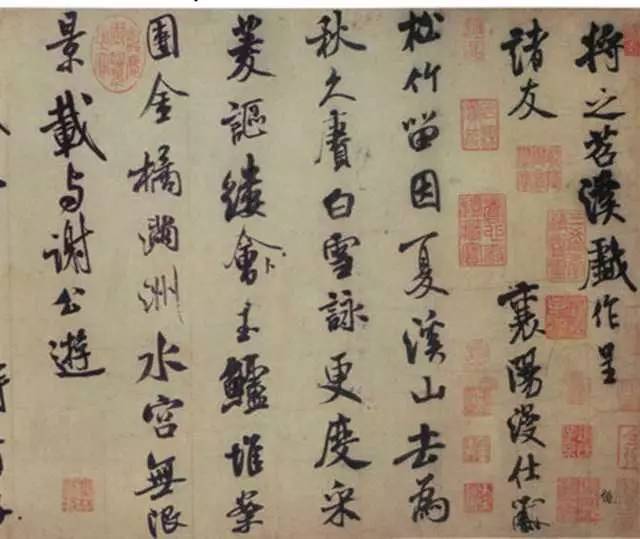 将之苕溪戲作呈
諸友 襄陽漫仕黻
松竹留因夏溪山去為
秋久賡白雪詠更度采
菱謳縷會玉鱸堆案
團金橘滿洲水宮無限
景載与謝公遊